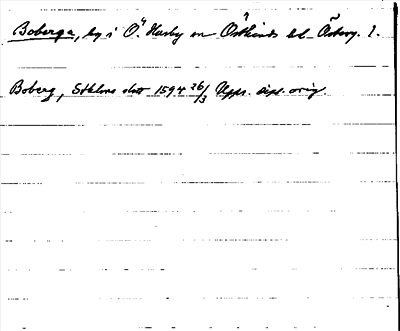 Boberga, by i Ö. Husby sn Östkinds hd Österg. l.
Boberg, Sthlms slott 1594 26/3 Upps. dipl. orig.